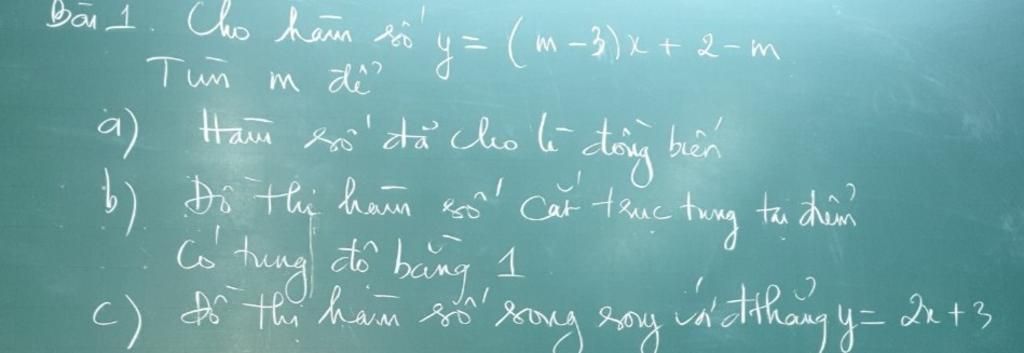 Bài 1. Cho hàm số y = (m - 3)x + 2 - m
Tìm m để
a) Hàm số đã cho là đồng biến
b) Đồ thị hàm số cắt trục tung tại điểm
Có tung độ bằng 1
c) Đồ thị hàm số song song với đthẳng y = 2x + 3